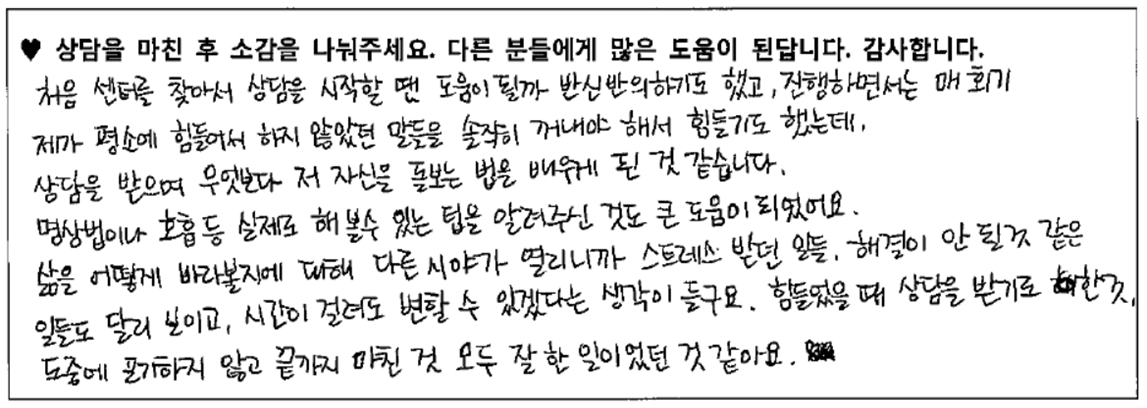 ♥ 상담을 마친 후 소감을 나눠주세요. 다른 분들에게 많은 도움이 된답니다. 감사합니다.
처음 센터를 찾아서 상담을 시작할 땐 도움이 될까 반신반의하기도 했고, 진행하면서는 매 회기
제가 평소에 힘들어서 하지 않았던 말들을 솔직히 꺼내야 해서 힘들기도 했는데,
상담을 받으며 무엇보다 저 자신을 돌보는 법을 배우게 된 것 같습니다.
명상법이나 호흡 등 실제로 해 볼수 있는 팁을 알려주신 것도 큰 도움이 되었어요.
삶을 어떻게 바라볼지에 대해 다른 시야가 열리니까 스트레스 받던 일들, 해결이 안 될것 같은
일들도 달리 보이고, 시간이 걸려도 변할 수 있겠다는 생각이 들구요. 힘들었을 때 상담을 받기로 한것,
도중에 포기하지 않고 끝까지 마친 것 모두 잘 한 일이었던 것 같아요.